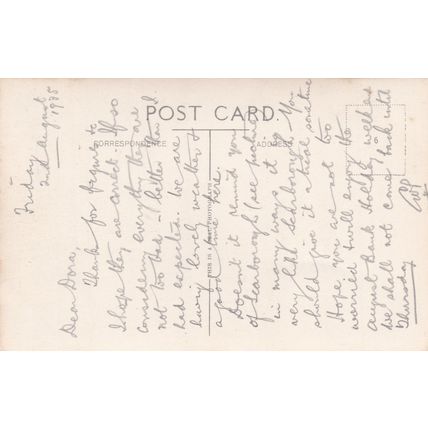 POST CARD.
CORRESPONDENCE
ADDRESS
THIS IS A REAL PHOTOGRAPH
Friday
2nd August 1935
Dear Dora,
Thanks for figures &
I hope they are correct. If so
considering everything they are
not too bad – better than I
had expected. We are
having lovely weather &
a good time here.
Doesn't it remind you
of Scarborough (see further)
in many ways it is
very like Scarborough. You
should give it a trial sometime
Hope you are not too
worried & will enjoy the
August Bank Holiday weekend
We shall not come back until
Thursday